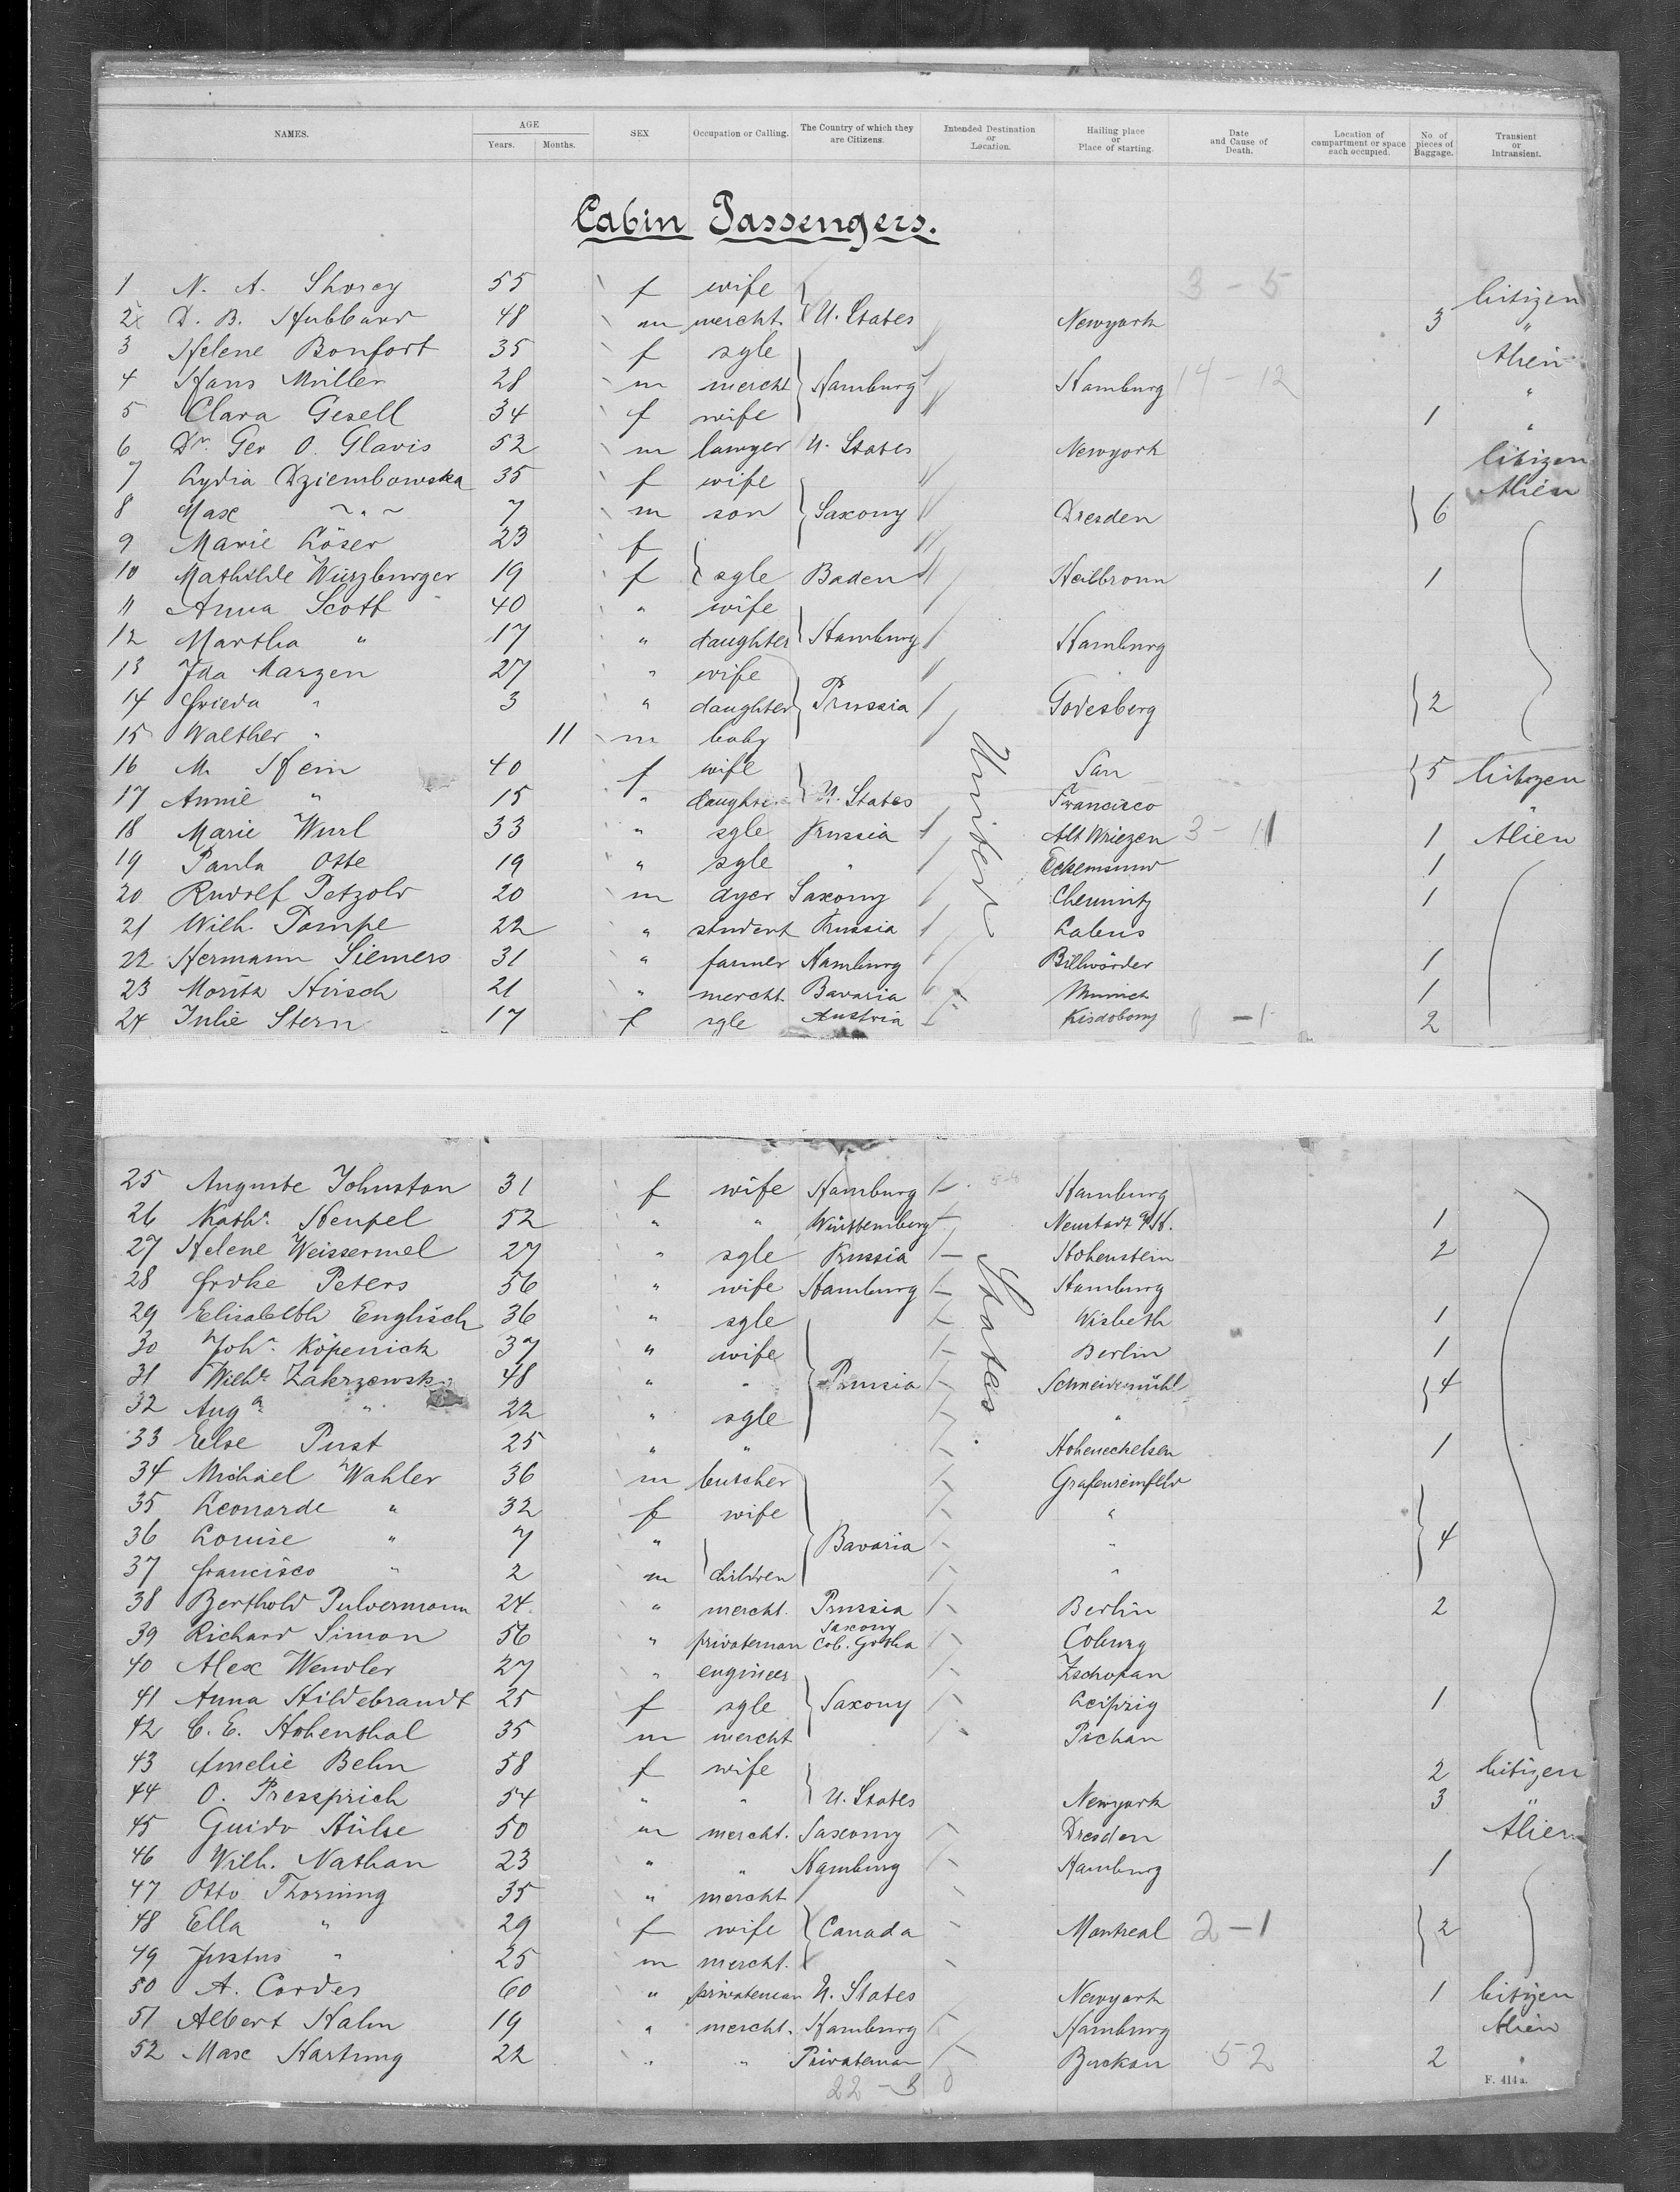 NAMES. AGE Years. Months. SEX Occupation or Calling. The Country of which they are Citizens. Intended Destination or Location. Hailing place or Place of starting. Date and Cause of Death. Location of compartment or space each occupied. No. of pieces of Baggage. Transient or Intransient.
Cabin Passengers.
1 N. A. Shorey 55 f wife 3 - 5 Citizen
2 D. B. Hubbard 48 m mercht. U. States Newyork 3 "
3 Helene Bonfort 35 f sgle Alien
4 Hans Müller 28 m mercht Hamburg Hamburg 14 - 12 "
5 Clara Gesell 34 f wife 1 "
6 Dr. Geo O. Glavis 52 m lawyer U. States Newyork Citizen
7 Lydia Dziembowska 35 f wife Alien
8 Max " 7 m son Saxony Dresden 6
9 Marie Löser 23 f
10 Mathilde Würzburger 19 f sgle Baden Heilbronn 1
11 Anna Scott 40 " wife
12 Martha " 17 " daughter Hamburg Hamburg
13 Ida Marzen 27 " wife
14 Frieda " 3 " daughter Prussia Godesberg 2
15 Walther " 11 m baby
16 M. Stein 40 f wife San 5 Citizen
17 Annie " 15 " daughter U. States Francisco
18 Marie Wurl 33 " sgle Prussia Alt Wriezen 3 - 11 1 Alien
19 Paula Otte 19 " sgle " 1
20 Rudolf Petzold 20 m dyer Saxony Chemnitz 1
21 Wilh. Pompe 22 " student Prussia Labes
22 Hermann Siemers 31 " farmer Hamburg Billwörder 1
23 Moritz Hirsch 21 " mercht. Bavaria Munich 1
24 Julie Stern 17 f sgle Austria 1 - 1 2
United
25 Auguste Johnston 31 f wife Hamburg Hamburg
26 Kath.a Hempel 52 " " Württemberg Neustadt 1
27 Helene Weissermel 27 " sgle Prussia Hohenstein 2
28 Frdke Peters 56 " wife Hamburg Hamburg
29 Elisabeth Englisch 36 " sgle Wisbeth 1
30 Joh.a Köpenick 37 " wife Berlin 1
31 Wilh.e Zakrzewsk 48 " " Prussia Schneidemühl 4
32 Aug.a " 22 " sgle "
33 Else Pust 25 " " 1
34 Michael Wahler 36 m butcher Grafenreinfeld
35 Leonarde " 32 f wife "
36 Louise " 7 " Bavaria " 4
37 Francisco " 2 m children "
38 Berthold Pulvermann 24 " mercht. Prussia Berlin 2
39 Richard Simon 56 " privateman Saxony Cob. Gotha Coburg
40 Alex Wendler 27 " engineer Zschopau
41 Anna Hildebrandt 25 f sgle Saxony Leipzig 1
42 C. E. Hohenthal 35 m mercht
43 Amelie Behn 58 f wife 2 Citizen
44 O. Pressprich 54 " " U. States Newyork 3 "
45 Guido Hülse 50 m mercht. Saxony Dresden Alien
46 Wilh. Nathan 23 " " Hamburg Hamburg 1
47 Otto Thorning 35 " mercht
48 Ella " 29 f wife Canada Montreal 2 - 1 2
49 Justus " 25 m mercht.
50 A. Cordes 60 " privateman U. States Newyork 1 Citizen
51 Albert Kalm 19 " mercht. Hamburg Hamburg Alien
52 Max Hartung 22 " " Privateman Buckau 52 2 "
States.
22 - 3 0
F. 414 a.